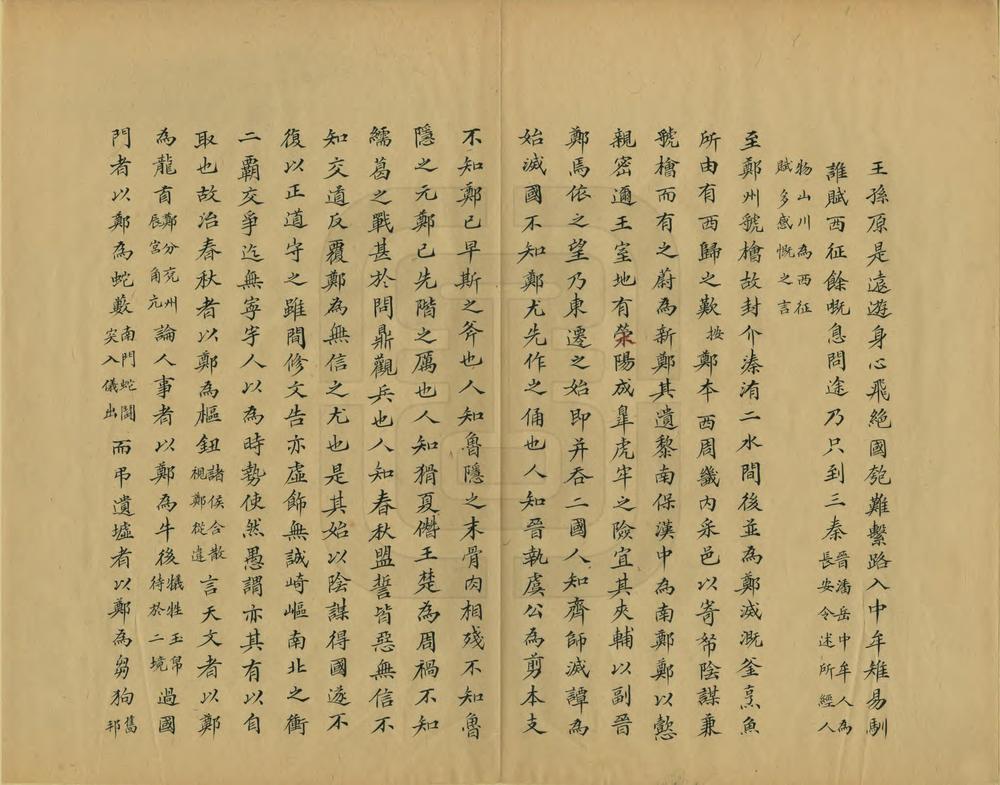 王孫原是遠遊身心飛絕國匏難繫路入中牟雉易馴
誰賦西征餘慨息問途乃只到三秦晉潘岳中牟人為長安令述所經人
物山川為西征賦多感慨之言
至鄭州虢檜故封介溱洧二水間後並為鄭滅溉釜烹魚
所由有西歸之歎按鄭本西周畿內采邑以寄帑陰謀兼
虢檜而有之蔚為新鄭其遺黎南保漢中為南鄭鄭以懿
親密邇王室地有滎陽成皋虎牢之險宜其夾輔以副晉
鄭焉依之望乃東遷之始即并吞二國人知齊師滅譚為
始滅國不知鄭尤先作之俑也人知晉執虞公為剪本支
不知鄭已早斯之斧也人知魯隱之末骨肉相殘不知魯
隱之元鄭已先階之厲也人知猾夏僭王楚為周禍不知
繻葛之戰甚於問鼎觀兵也人知春秋盟誓皆惡無信不
知交道反覆鄭為無信之尤也是其始以陰謀得國遂不
復以正道守之雖間修文告亦虛飾無誠崎嶇南北之衝
二霸交爭迄無寧宇人以為時勢使然愚謂亦其有以自
取也故治春秋者以鄭為樞鈕諸侯合散視鄭從違言天文者以鄭
為龍首鄭分兗州辰宮角亢論人事者以鄭為牛後犧牲玉帛待於二境過國
門者以鄭為蛇藪南門蛇鬪突入儀出而弔遺墟者以鄭為芻狗舊邦